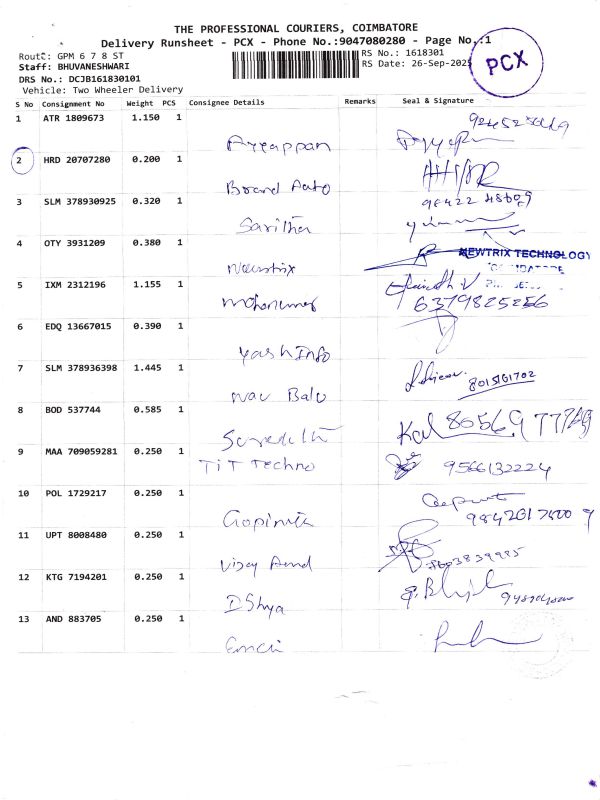 THE PROFESSIONAL COURIERS, COIMBATORE
Delivery Runsheet - PCX - Phone No.:9047080280 - Page No.:1
Route: GPM 6 7 8 ST
RS No.: 1618301
Staff: BHUVANESHWARI
RS Date: 26-Sep-2025
PCX
DRS No.: DCJB161830101
Vehicle: Two Wheeler Delivery
S No Consignment No Weight PCS Consignee Details Remarks Seal & Signature
1 ATR 1809673 1.150 1
Ayyappan
2 HRD 20707280 0.200 1
Brand Auto
3 SLM 378930925 0.320 1
Saritha
4 OTY 3931209 0.380 1
Newtrix
NEWTRIX TECHNOLOGY
5 IXM 2312196 1.155 1
6379825256
6 EDQ 13667015 0.390 1
Yash Info
7 SLM 378936398 1.445 1
8015161702
Nav Balu
8 BOD 537744 0.585 1
9 MAA 709059281 0.250 1
TIT Techno
9566132224
10 POL 1729217 0.250 1
Gopinath
11 UPT 8008480 0.250 1
Vijay Anand
12 KTG 7194201 0.250 1
D Shya
13 AND 883705 0.250 1